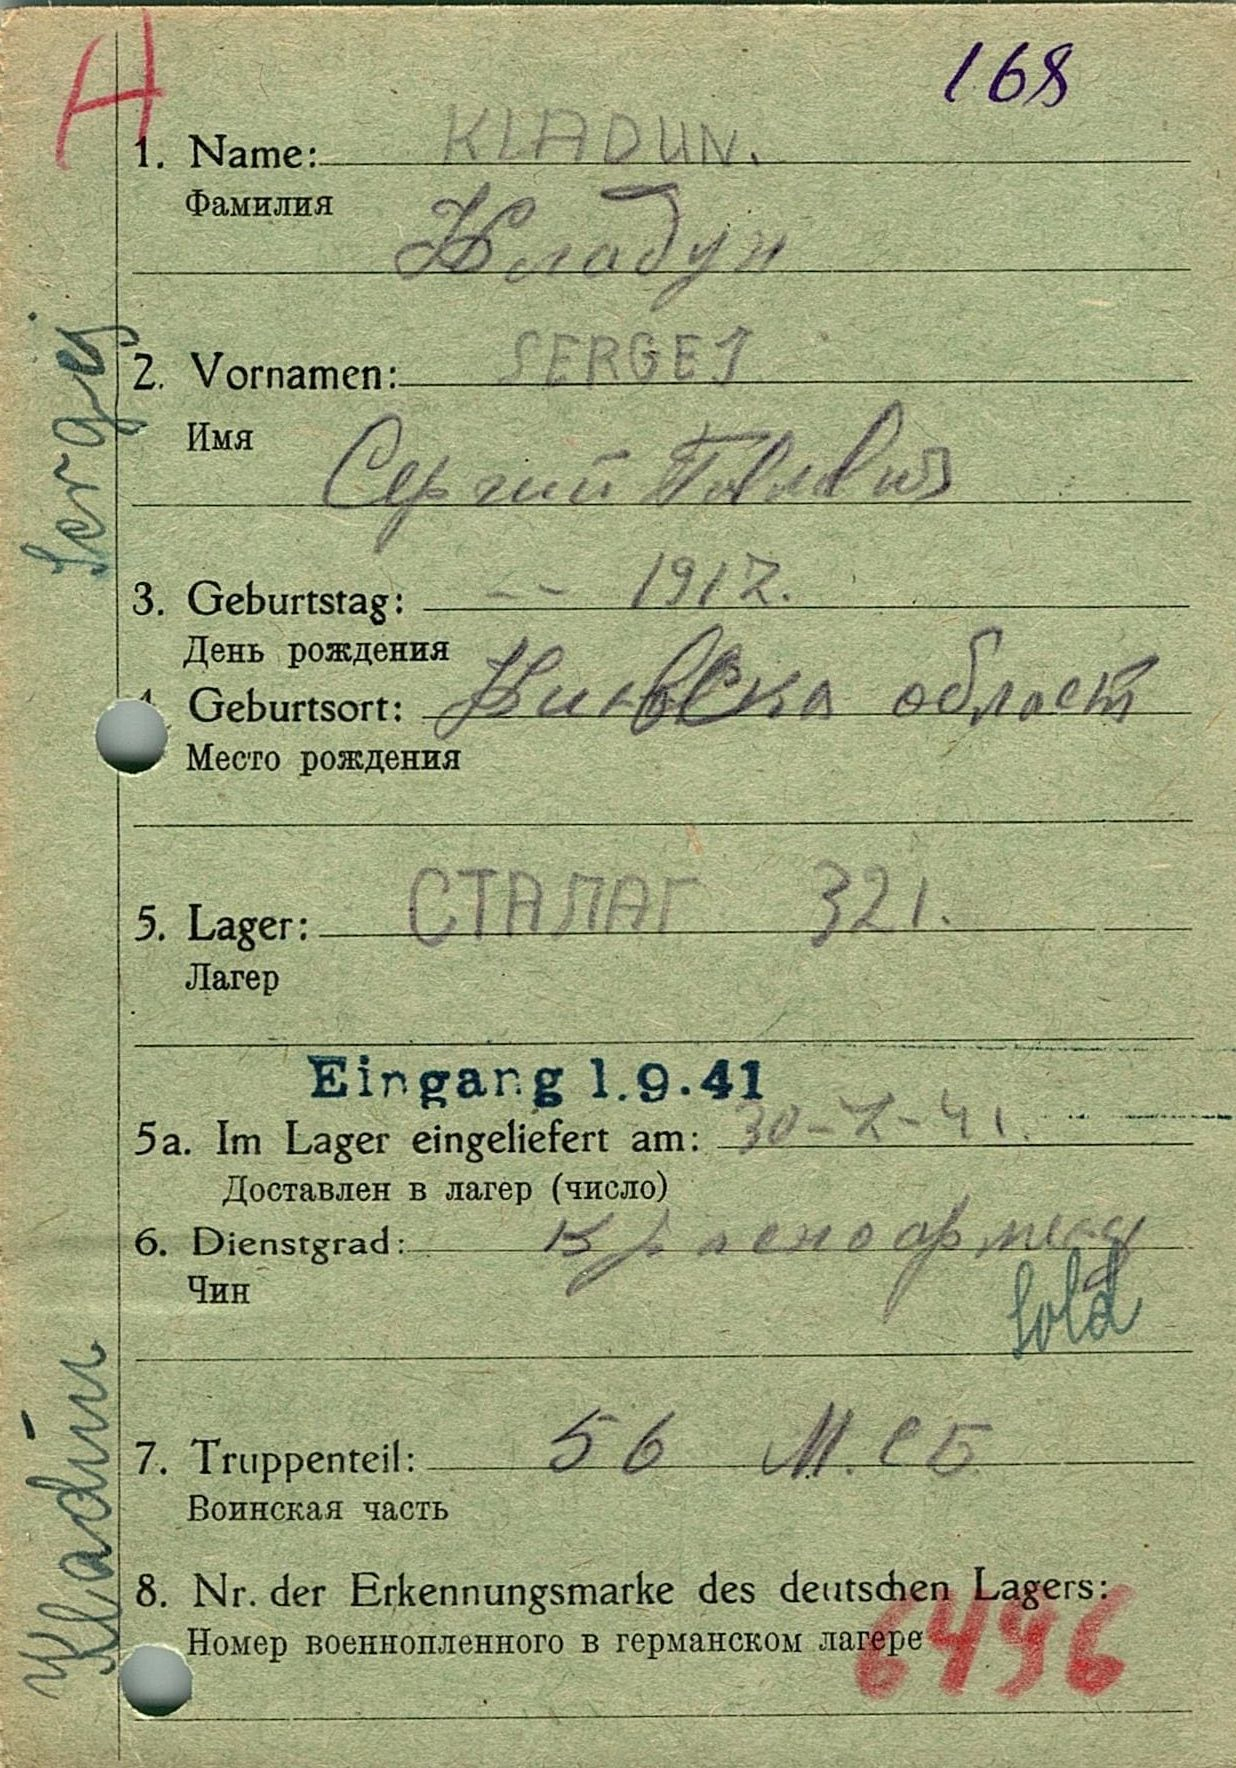 H
168
1. Name: KLADUN.
Фамилия
Кладун
2. Vornamen: SERGEJ
Имя
Сергий Павлович
3. Geburtstag: -- 1917.
День рождения
4. Geburtsort: Киевска област
Место рождения
5. Lager: СТАЛАГ 321.
Лагер
Eingang 1.9.41
5a. Im Lager eingeliefert am: 30-7-41.
Доставлен в лагер (число)
6. Dienstgrad: красноармеец
Чин
Sold
7. Truppenteil: 56 М.СБ
Воинская часть
8. Nr. der Erkennungsmarke des deutschen Lagers:
Номер военнопленного в германском лагере 6496
Sergej
Kladun